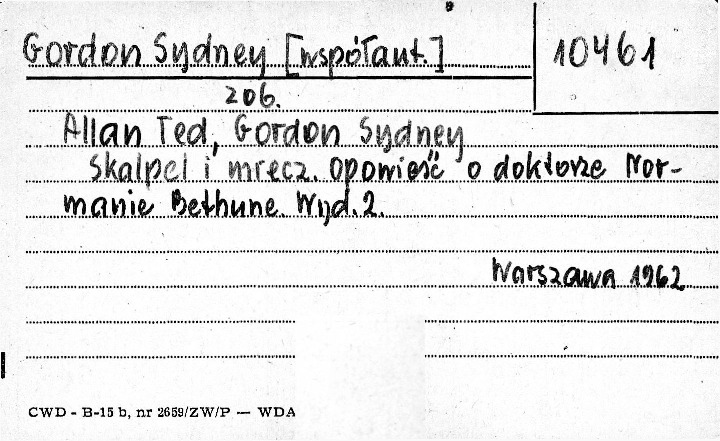 Gordon Sydney [współaut.]
10461
206.
Allan Ted, Gordon Sydney
Skalpel i mrecz. Opowieść o doktorze Nor-
manie Bethune. Wyd. 2.
Warszawa 1962
CWD - B-15 b, nr 2659/ZW/P — WDA